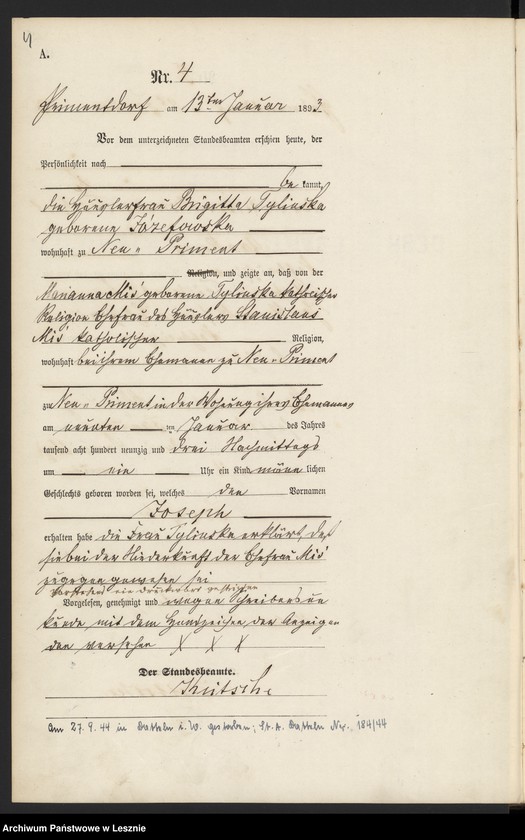 4
A.
Nr. 4
Primentdorf am 13ten Januar 1893
Vor dem unterzeichneten Standesbeamten erschien heute, der
Persönlichkeit nach
be kannt,
die Häuslerfrau Brigitta Tylinska
geborene Józefowska
wohnhaft zu Neu-Priment
Religion, und zeigte an, daß von der
Marianna Miś geborene Tylinska katholischer
Religion Ehefrau des Häuslers Stanislaus
Miś katholischer Religion,
wohnhaft bei ihrem Ehemanne zu Neu-Priment
zu Neu-Priment in der Wohnung ihres Ehemannes
am neunten im Januar des Jahres
tausend acht hundert neunzig und drei Nachmittags
um ein Uhr ein Kind männ lichen
Geschlechts geboren worden sei, welches den Vornamen
Joseph
erhalten habe die Frau Tylinska erklärt, daß
sie bei der Niederkunft der Ehefrau Miś
zugegen gewesen sei
Vorstehend ein Druckwort gestrichen
Vorgelesen, genehmigt und wegen Schreibensun
kunde mit dem Handzeichen der Anzeigen
den versehen X X X
Der Standesbeamte.
Am 27.9.44 in Datteln i. W. gestorben; St. A. Datteln Nr. 184/44
Archiwum Państwowe w Lesznie